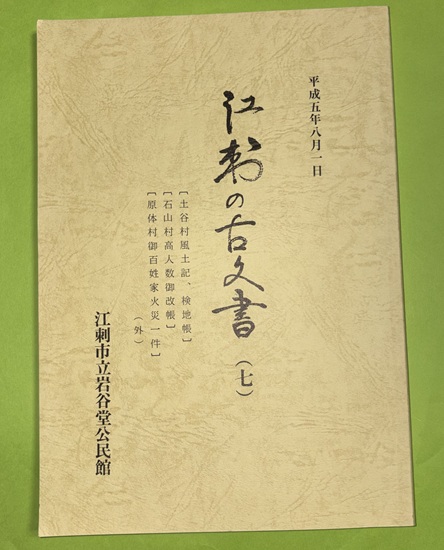 平成五年八月一日
江刺の古文書(七)
[土谷村風土記、検地帳]
[石山村高人数御改帳]
[原体村御百姓家火災一件]
(外)
江刺市立岩谷堂公民館